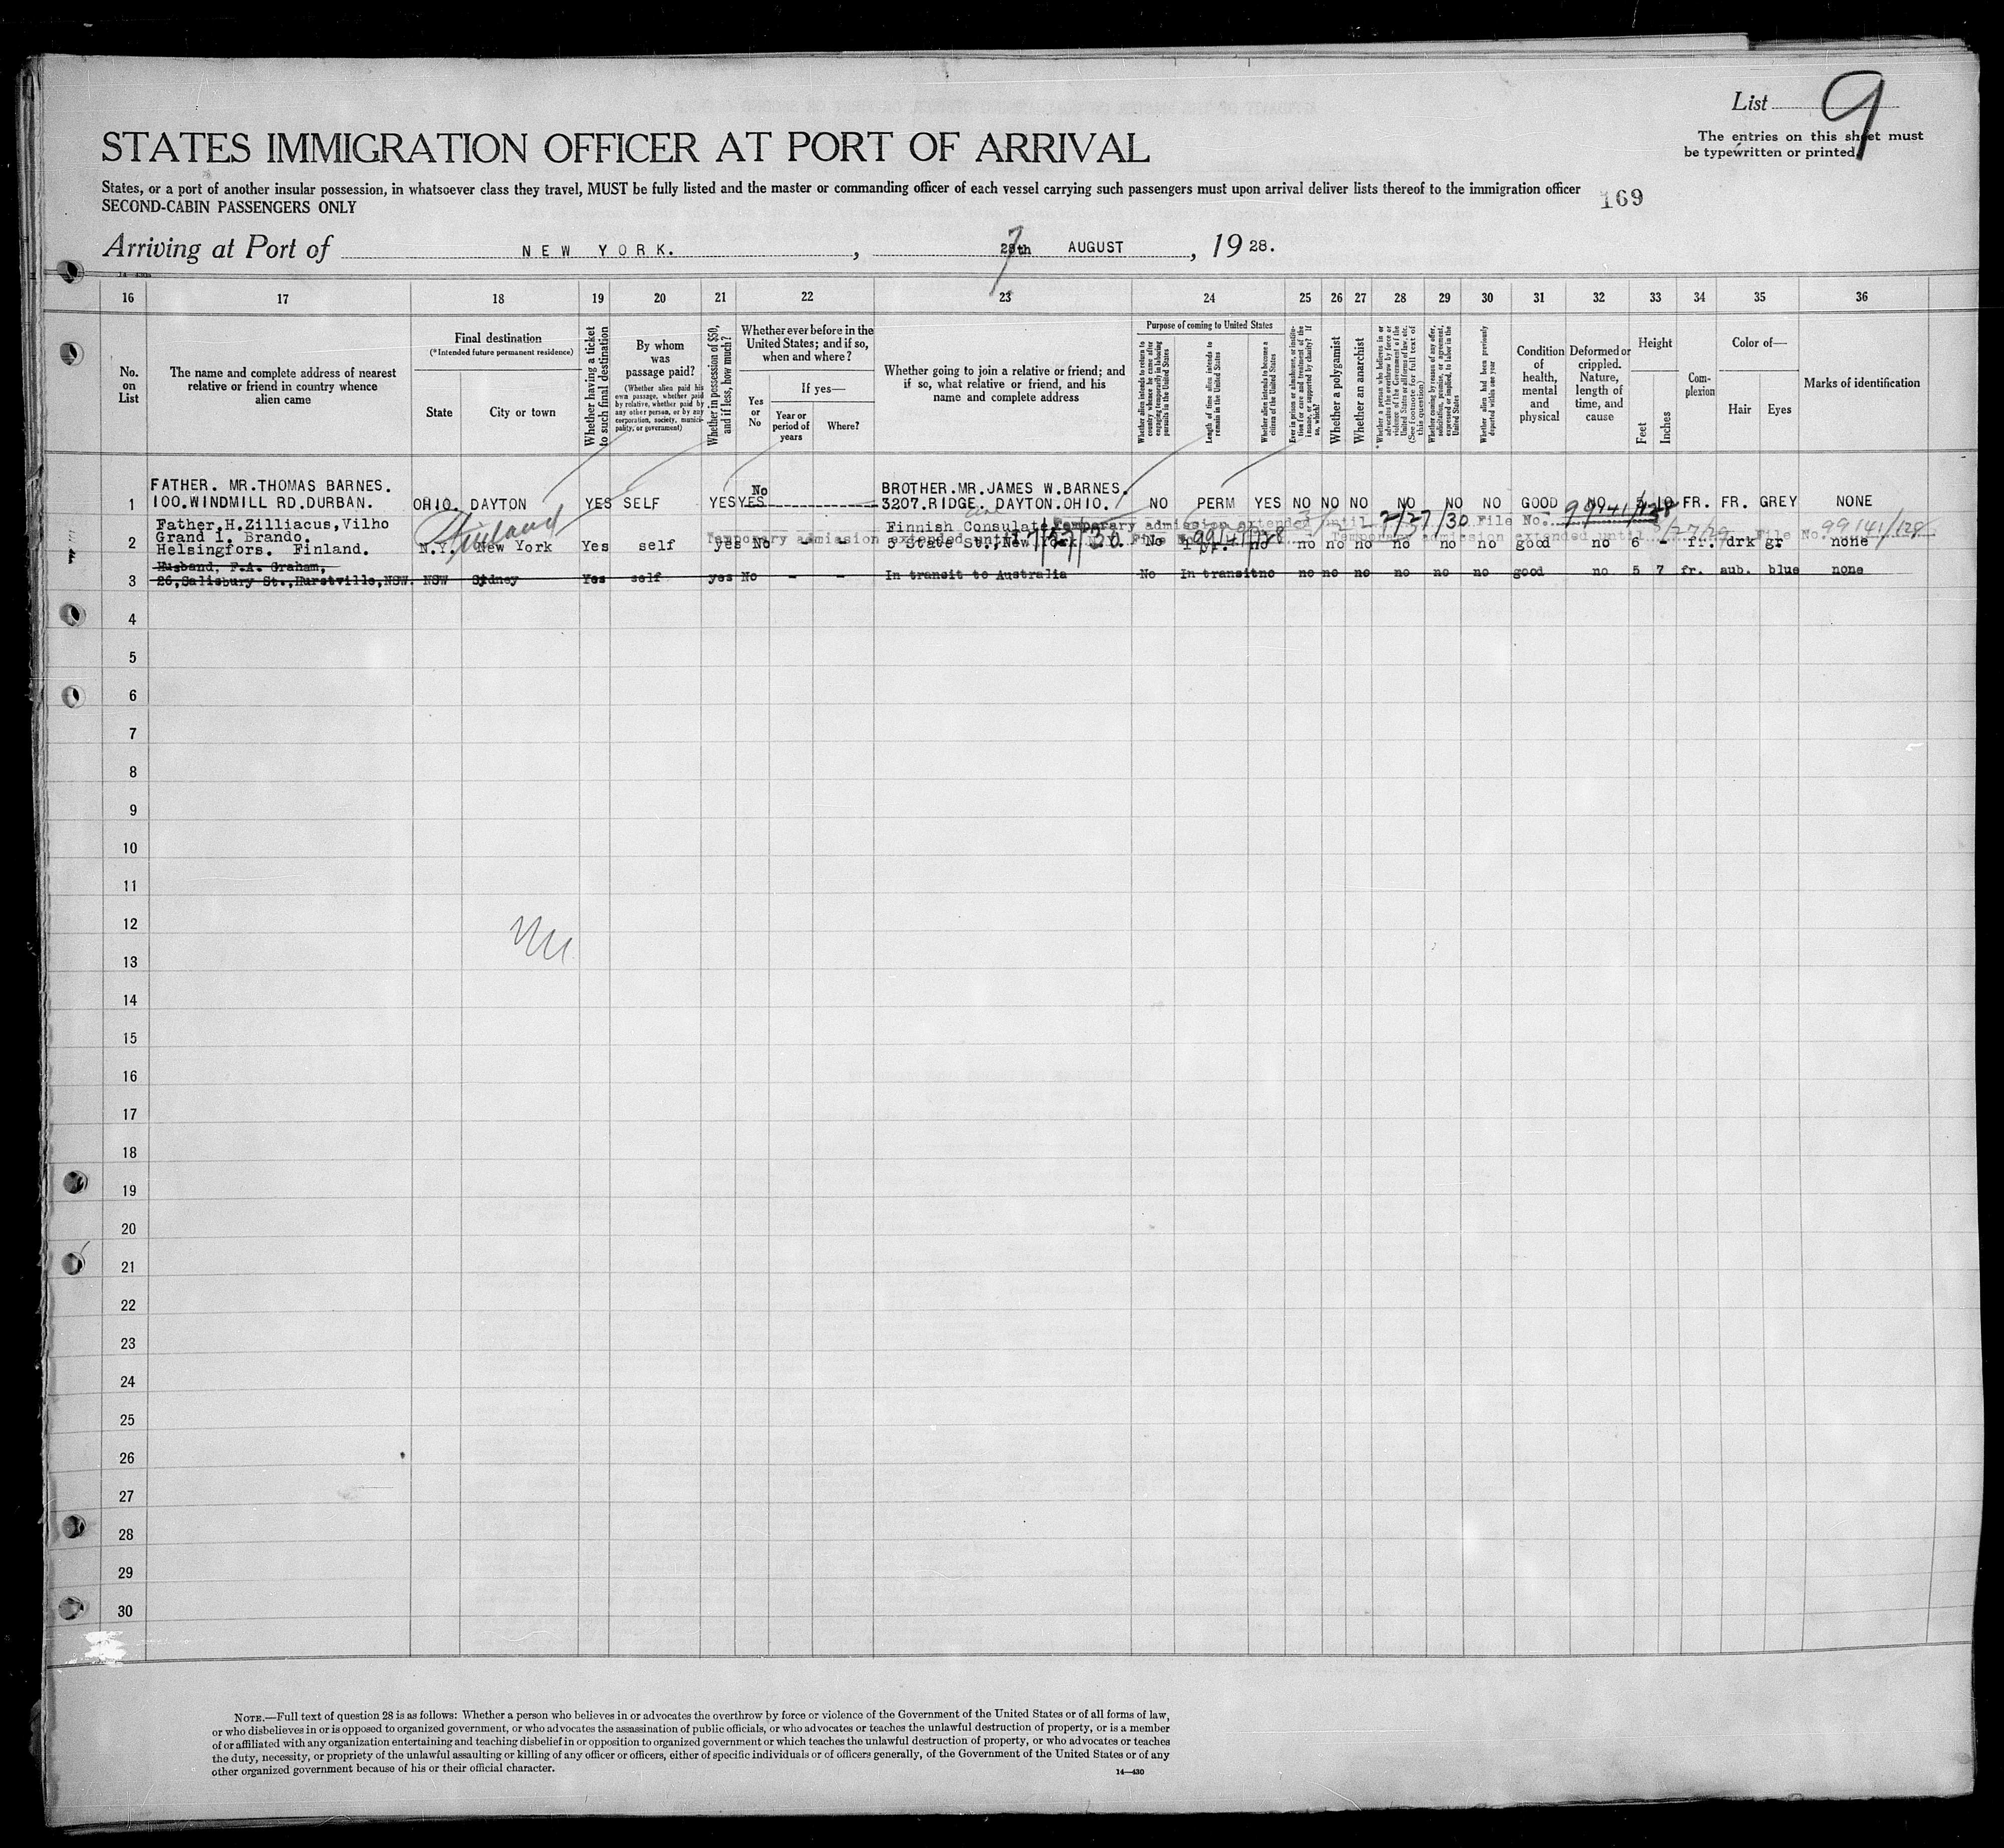 List 9
The entries on this sheet must
be typewritten or printed.
STATES IMMIGRATION OFFICER AT PORT OF ARRIVAL
States, or a port of another insular possession, in whatsoever class they travel, MUST be fully listed and the master or commanding officer of each vessel carrying such passengers must upon arrival deliver lists thereof to the immigration officer
SECOND-CABIN PASSENGERS ONLY
169
Arriving at Port of NEW YORK. , 7 AUGUST , 19 28.
16 17 18 19 20 21 22 23 24 25 26 27 28 29 30 31 32 33 34 35 36
No.
on
List
The name and complete address of nearest
relative or friend in country whence
alien came
Final destination
(*Intended future permanent residence)
State
City or town
Whether having a ticket
to such final destination
By whom
was
passage paid?
(Whether alien paid his
own passage, whether paid
by relative, whether paid by
any other person, or by any
corporation, society, munici-
pality, or government)
Whether in possession of $50,
and if less, how much?
Whether ever before in the
United States; and if so,
when and where?
Yes
or
No
If yes—
Year or
period of
years
Where?
Whether going to join a relative or friend; and
if so, what relative or friend, and his
name and complete address
Purpose of coming to United States
Whether alien intends to return to
country whence he came after
engaging temporarily in laboring
pursuits in the United States
Length of time alien intends to
remain in the United States
Whether alien intends to become a
citizen of the United States
Ever in prison or almshouse, or institu-
tion for care and treatment of the
insane, or supported by charity? If
so, which?
Whether a polygamist
Whether an anarchist
*Whether a person who believes in or
advocates the overthrow by force or
violence of the Government of the
United States or all forms of law, etc.
(See footnote for full text of
this question)
Whether coming by reason of any offer,
solicitation, promise, or agreement,
expressed or implied, to labor in the
United States
Whether alien had been previously
deported within one year
Condition
of
health,
mental
and
physical
Deformed or
crippled.
Nature,
length of
time, and
cause
Height
Feet
Inches
Com-
plexion
Color of—
Hair
Eyes
Marks of identification
FATHER. MR.THOMAS BARNES. No BROTHER.MR.JAMES W.BARNES.
1 100.WINDMILL RD.DURBAN. OHIO. DAYTON YES SELF YES YES 3207.RIDGE. DAYTON.OHIO. NO PERM YES NO NO NO NO NO NO GOOD NO 5 10 FR. FR. GREY NONE
Father,H.Zilliacus,Vilho Finland Finnish Consulate Temporary admission extended until 7/27/30 File No. 99141/128
Grand 1. Brando. Temporary admission extended until 7/27/30 File No. 99141/128 Temporary admission extended until 3/27/29 File No. 99141/128
2 Helsingfors. Finland. N.Y. New York Yes self yes No - 5 State St.,New York No 1 yr. no no no no no no no good no 6 - fr. drk gr none
Husband, F.A. Graham,
3 26,Salisbury St.,Hurstville,NSW. NSW Sydney Yes self yes No - - In transit to Australia No In transit no no no no no no no good no 5 7 fr. aub. blue none
4
5
6
7
8
9
10
11
12
13
14
15
16
17
18
19
20
21
22
23
24
25
26
27
28
29
30
NOTE.—Full text of question 28 is as follows: Whether a person who believes in or advocates the overthrow by force or violence of the Government of the United States or of all forms of law,
or who disbelieves in or is opposed to organized government, or who advocates the assassination of public officials, or who advocates or teaches the unlawful destruction of property, or is a member
of or affiliated with any organization entertaining and teaching disbelief in or opposition to organized government or which teaches the unlawful destruction of property, or who advocates or teaches
the duty, necessity, or propriety of the unlawful assaulting or killing of any officer or officers, either of specific individuals or of officers generally, of the Government of the United States or of any
other organized government because of his or their official character.
14—430